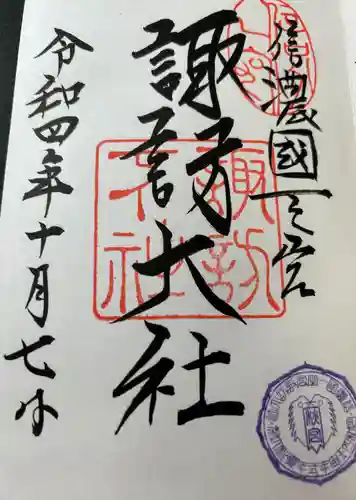 信濃國一之宮
諏訪大社
令和四年十月七日
諏訪大社